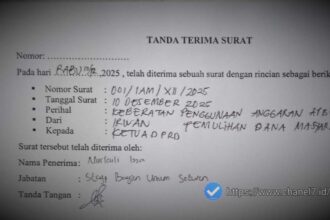 TANDA TERIMA SURAT
Nomor:
Pada hari RABU 10/12, 2025, telah diterima sebuah surat dengan rincian sebagai berik
• Nomor Surat : 001/IAM/XII/2025
• Tanggal Surat : 10 DESEMBER 2025
• Perihal : KEBERATAN PENGGUNAAN ANGGARAN ATB
• Dari : IRWAN PEMULIHAN DANA MASJAR
• Kepada : KETUA DPRD
Surat tersebut telah diterima oleh:
Nama Penerima:
Jabatan : Staf Bagian Umum
Tanda Tangan :
https://www.chanel7.id/